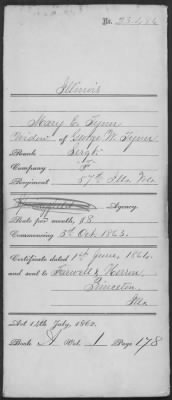 No. 23.486
Illinois
Mary E. Tyner
Widow of George W. Tyner
Rank Sergt.
Company "F"
Regiment 57th Ills Vols
Agency.
Rate per month, $8
Commencing 5th Oct. 1863.
Certificate dated 1st June, 1864.
and sent to Farwell & Herron
Princeton,
Ills
Act 14th July, 1862.
Book A Vol. 1 Page 178